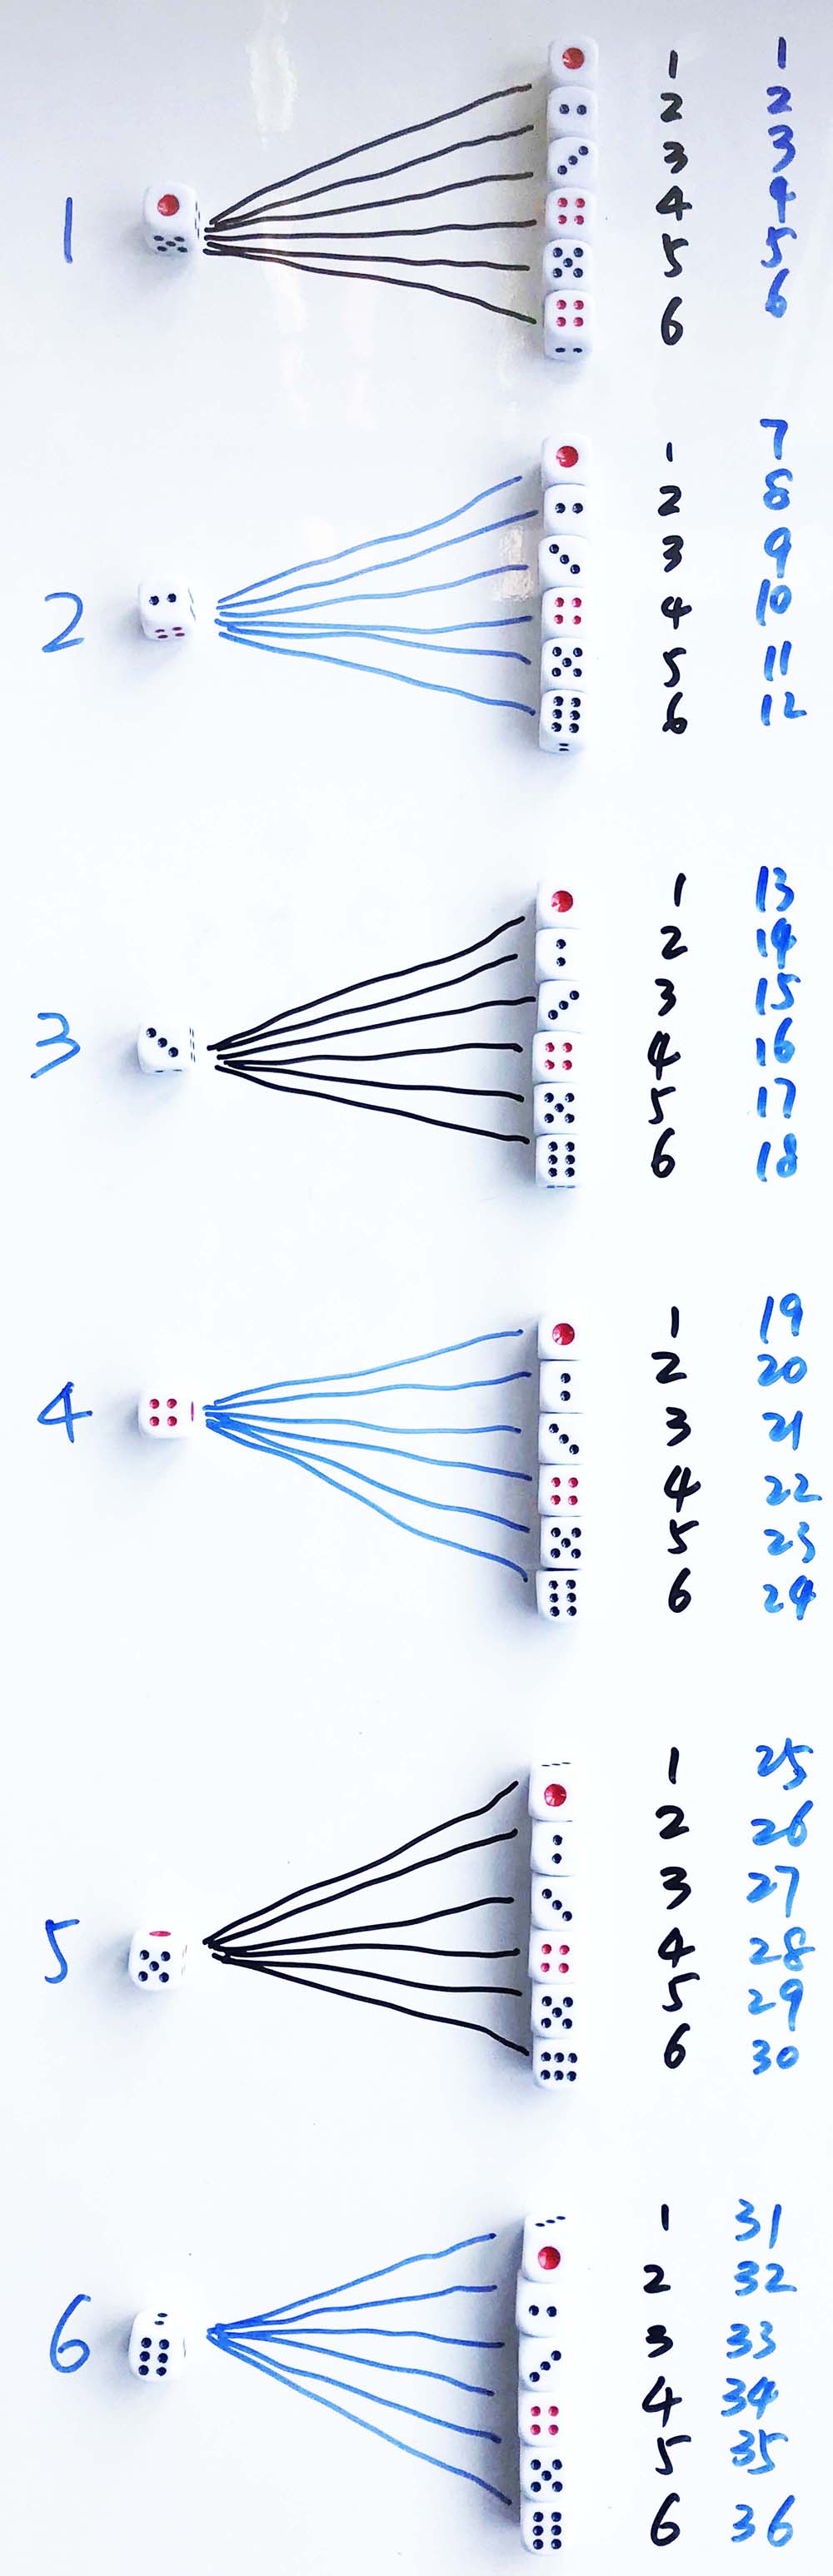 1 1
2 2
3 3
4 4
1 5 5
6 6
7
1 8
2 9
3 10
2 4 11
5 12
6
1 13
2 14
3 15
3 4 16
5 17
6 18
1 19
2 20
3 21
4 4 22
5 23
6 24
1 25
2 26
3 27
5 4 28
5 29
6 30
1 31
2 32
6 3 33
4 34
5 35
6 36